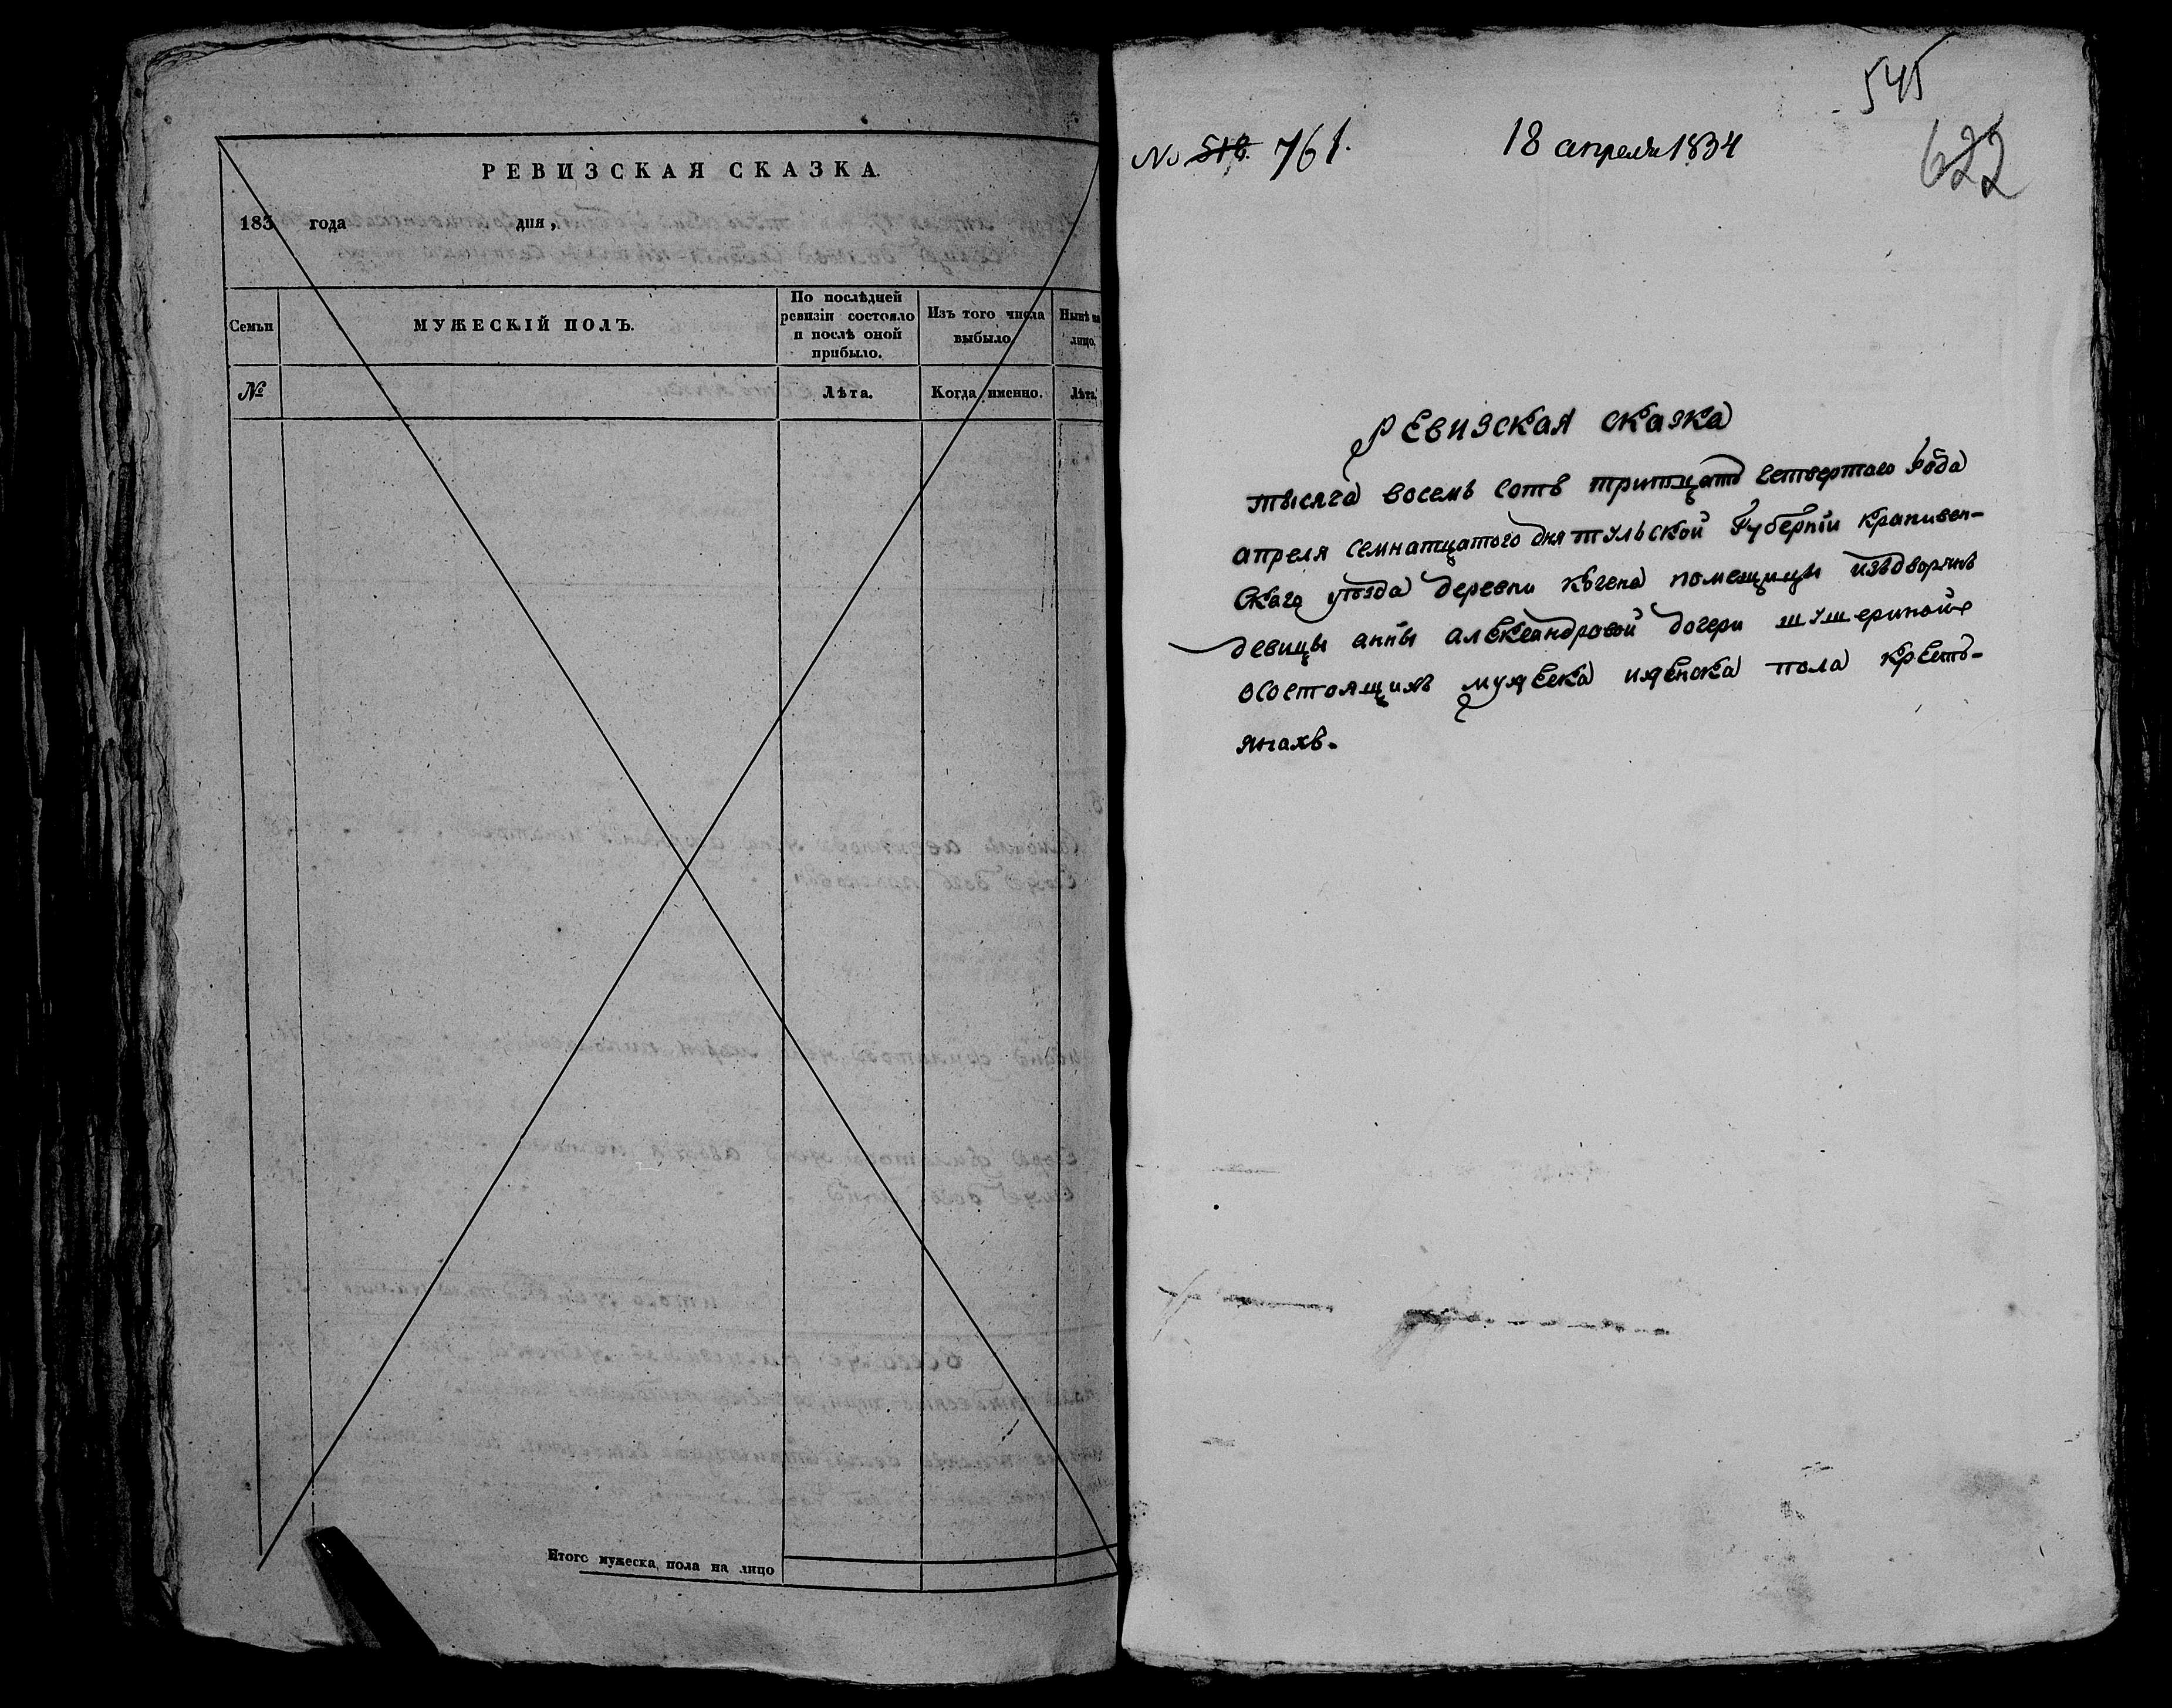 РЕВИЗСКАЯ СКАЗКА.
183 года дня,
Семьи
МУЖЕСКІЙ ПОЛЪ.
По послѣдней ревизіи состояло и послѣ оной прибыло.
Изъ того числа выбыло
Нынѣ на лицо.
№
Лѣта.
Когда именно.
Лѣта.
Итого мужеска пола на лицо
545
622
№ 518. 761.
18 апреля 1834
Ревизская сказка
тысяча восемь сотъ тритцать четвертаго года
апреля семнатцатого дня тульской Губерніи крапивен-
скаго уѣзда деревни помещицы издворянъ
девицы анны александровой дочери шушериной
осостоящихъ мужеска иженска пола кресть-
янахъ.